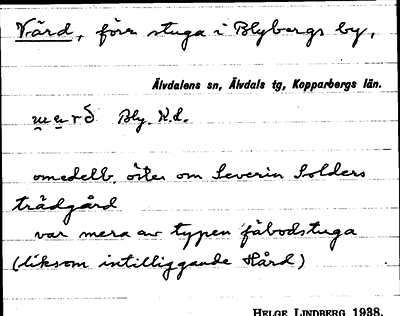 Vård, förr stuga i Blybergs by,
Älvdalens sn, Älvdals tg, Kopparbergs län.
Bly. K.L.
omedelb. öster om Severin Solders
trädgård
var mera av typen fäbodstuga
(liksom intilliggande Hård)
HELGE LINDBERG 1938.